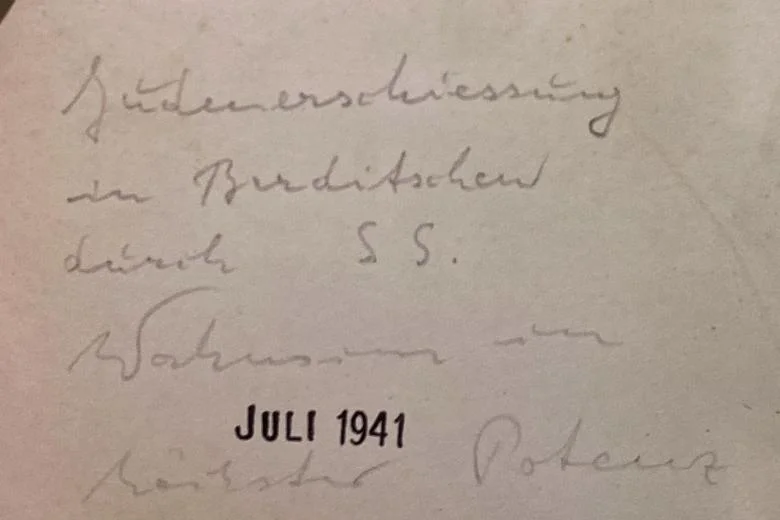 Judenerschiessung
in Berditschew
durch SS.
Wahnsinn in
JULI 1941
höchster Potenz